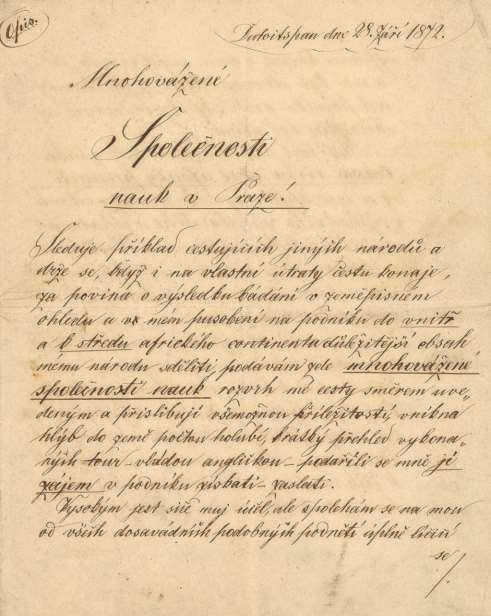 Opis.
Dutoitspan dne 28. Září 1872.
Mnohovážené
Společnosti
nauk v Praze!
Sleduje příklad cestujících jiných národů a
drže se, když i na vlastní útraty cestu konaje,
za povinna o výsledku bádání v zeměpisném
ohledu a v mém pusobení na podniku do vnitř
a k středu afrického continentu důležitější obsah
mému národu sděliti podávám zde mnohovážené
společnosti nauk rozvrh mé cesty směrem uve-
deným a přislibuji všemožnou příležitostí, vniknu
hlýb do země počtou holubí, krátký přehled vykona-
ných tour vládou anglikou podaříli se mně jí
zajem v podniku získati zaslati.
Vysokým jest sice muj účel, ale spolehám se na mou
od všech dosavádních podobných podnětí úplně lišící
se